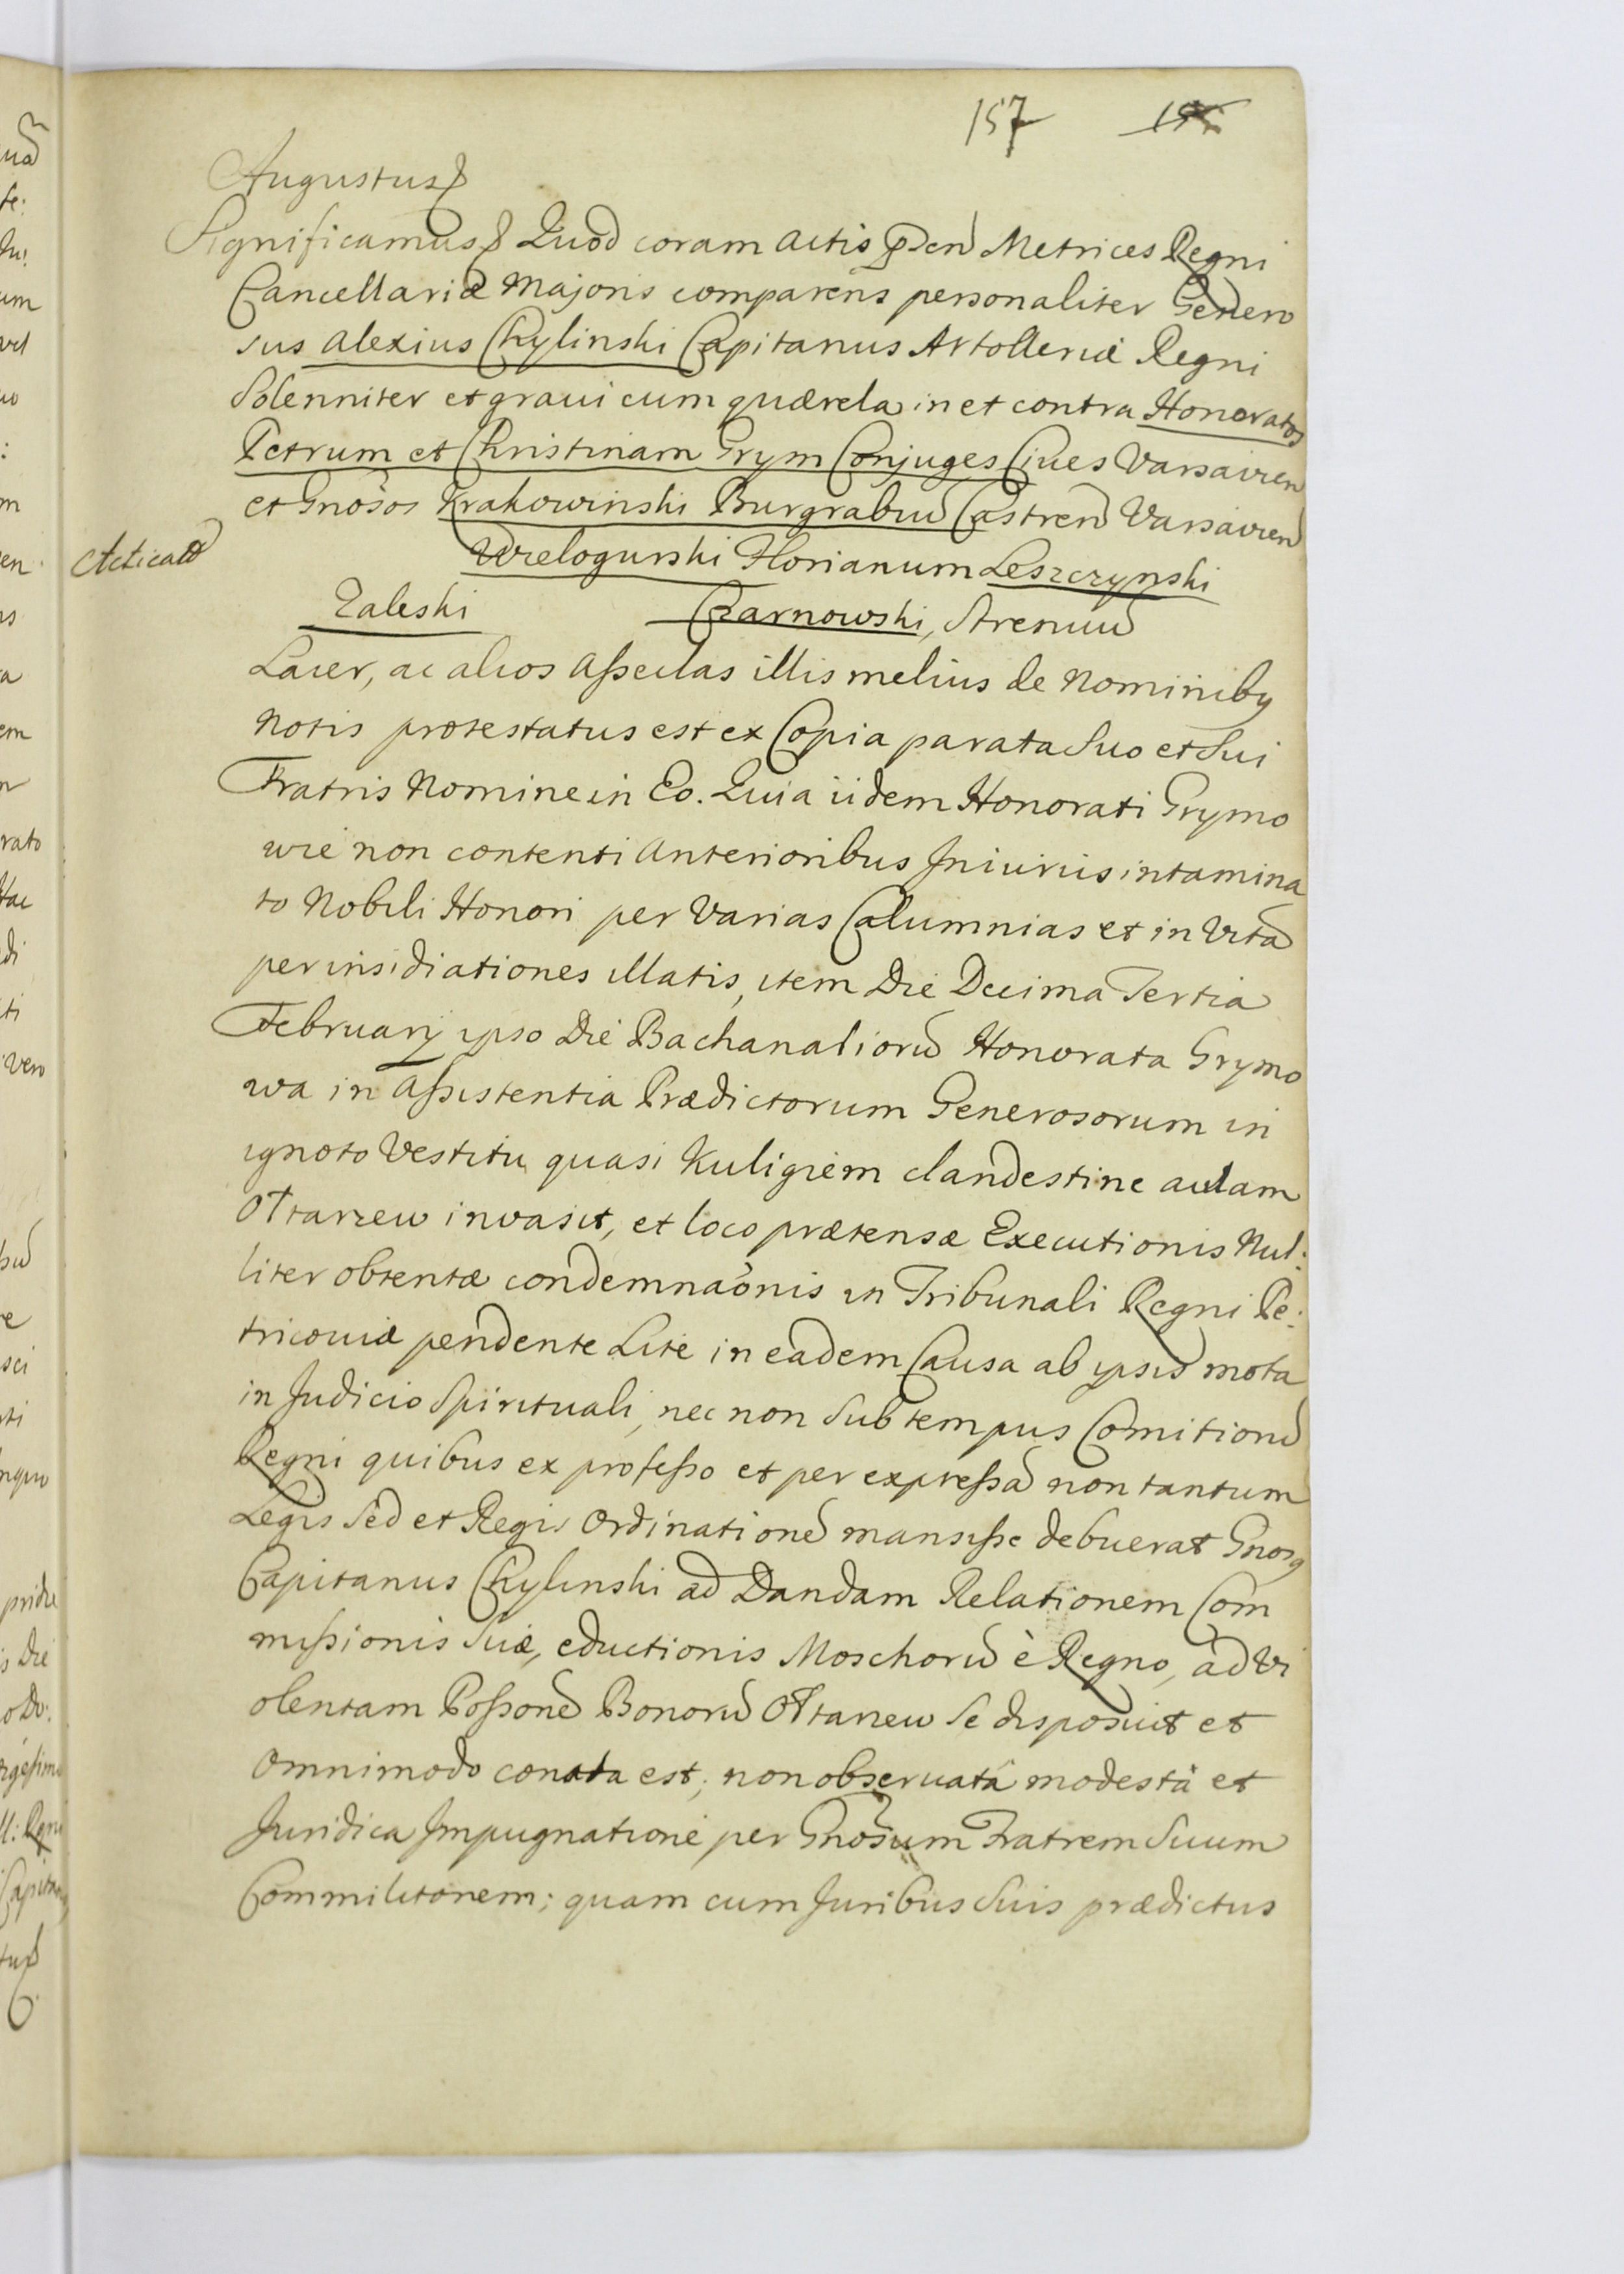 157 195
Augustus
Significamus Quod coram Actis pñen Metrices Regni
Cancellariæ Majoris comparens personaliter Genero
sus Alexius Chylinski Capitanus Artolleriæ Regni
Solenniter et graui cum quærela in et contra Honoratos
Petrum et Christinam Grym Conjuges Ciues Varsavien
et Gnosos Krakowinski Burgrabiu Castren Varsavien
Acticatio
Wielogurski Florianum Leszczynski
Zaleski Czarnowski, Strenuu
Laier, ac alios Asseclas illis melius de Nominibq
Notis protestatus est ex Copia parata Suo et Sui
Fratris Nomine in Eo. Quia iidem Honorati Grymo
wie non contenti Anterioribus Iniuriis intamina
to Nobili Honori per Varias Calumnias et in Vita
per insidiationes illatis, item Die Decima Tertia
Februarij ipso Die Bachanalioru Honorata Grymo
wa in Assistentia Prædictorum Generosorum in
ignoto Vestitu quasi Kuligiem clandestine aulam
Ołtarzew invasit, et loco prætensæ Executionis Nul:
liter obtentæ condemnaonis in Tribunali Regni Pe:
tricoviæ pendente Lite in eadem Causa ab ipsis mota
in Judicio Spirituali, nec non Sub tempus Comitioru
Regni quibus ex professo et per expressa non tantum
Legis Sed et Regis Ordinatione mansisse debuerat Gnosq
Capitanus Chylinski ad Dandam Relationem Com
missionis Suæ, eductionis Moschoru è Regno, ad Vi
olentam Possone Bonoru Ołtarzew Se disposuit et
Omnimodo conata est; non obseruatâ modestâ et
Juridica Impugnatione per Gnosum Fratrem Suum
Commilitonem; quam cum Juribus Suis prædictus